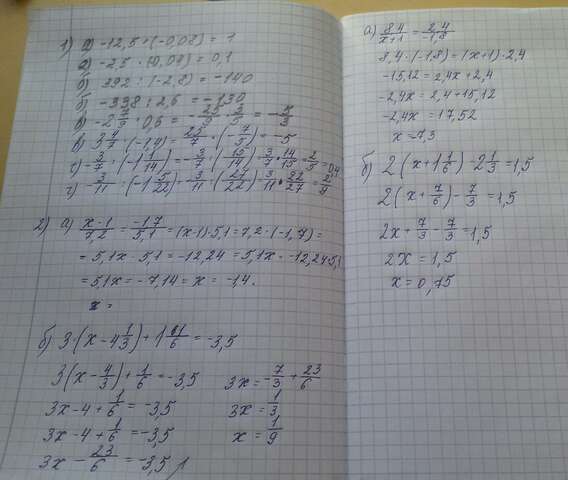 1) а) -12,5 · (-0,08) = 1
а) -2,5 · (0,04) = 0,1
б) 392 : (-2,8) = -140
б) -338 : 2,6 = -130
в) -2 7/9 · 0,6 = -25/9 · 3/5 = -5/3
в) 3 4/7 · (-1,4) = 25/7 · (-7/5) = -5
г) -3/7 : (-1 1/14) = -3/7 : (15/14) = 3/7 · 14/15 = 2/5 = 0,4
г) -3/11 : (-1 5/22) = -3/11 : (27/22) = 3/11 · 22/27 = 2/9
2) а) x-1/7,2 = -1,7/5,1 = (x-1) · 5,1 = 7,2 · (-1,7) =
= 5,1x - 5,1 = -12,24 = 5,1x = -12,24+5,1
= 5,1x = -7,14 = x = -1,4.
x =
б) 3 · (x - 4 1/3) + 1/6 = -3,5
3 (x - 4/3) + 1/6 = -3,5
3x - 4 + 1/6 = -3,5
3x - 4 + 1/6 = -3,5
3x - 23/6 = -3,5
3x = -7/3 + 23/6
3x = 1/3
x = 1/9
а) 8,4/x+1 = 2,4/-1,8
8,4 · (-1,8) = (x+1) · 2,4
-15,12 = 2,4x + 2,4
-2,4x = 2,4 + 15,12
-2,4x = 17,52
x = -7,3
б) 2 (x + 1 1/6) - 2 1/3 = 1,5
2 (x + 7/6) - 7/3 = 1,5
2x + 7/3 - 7/3 = 1,5
2x = 1,5
x = 0,75